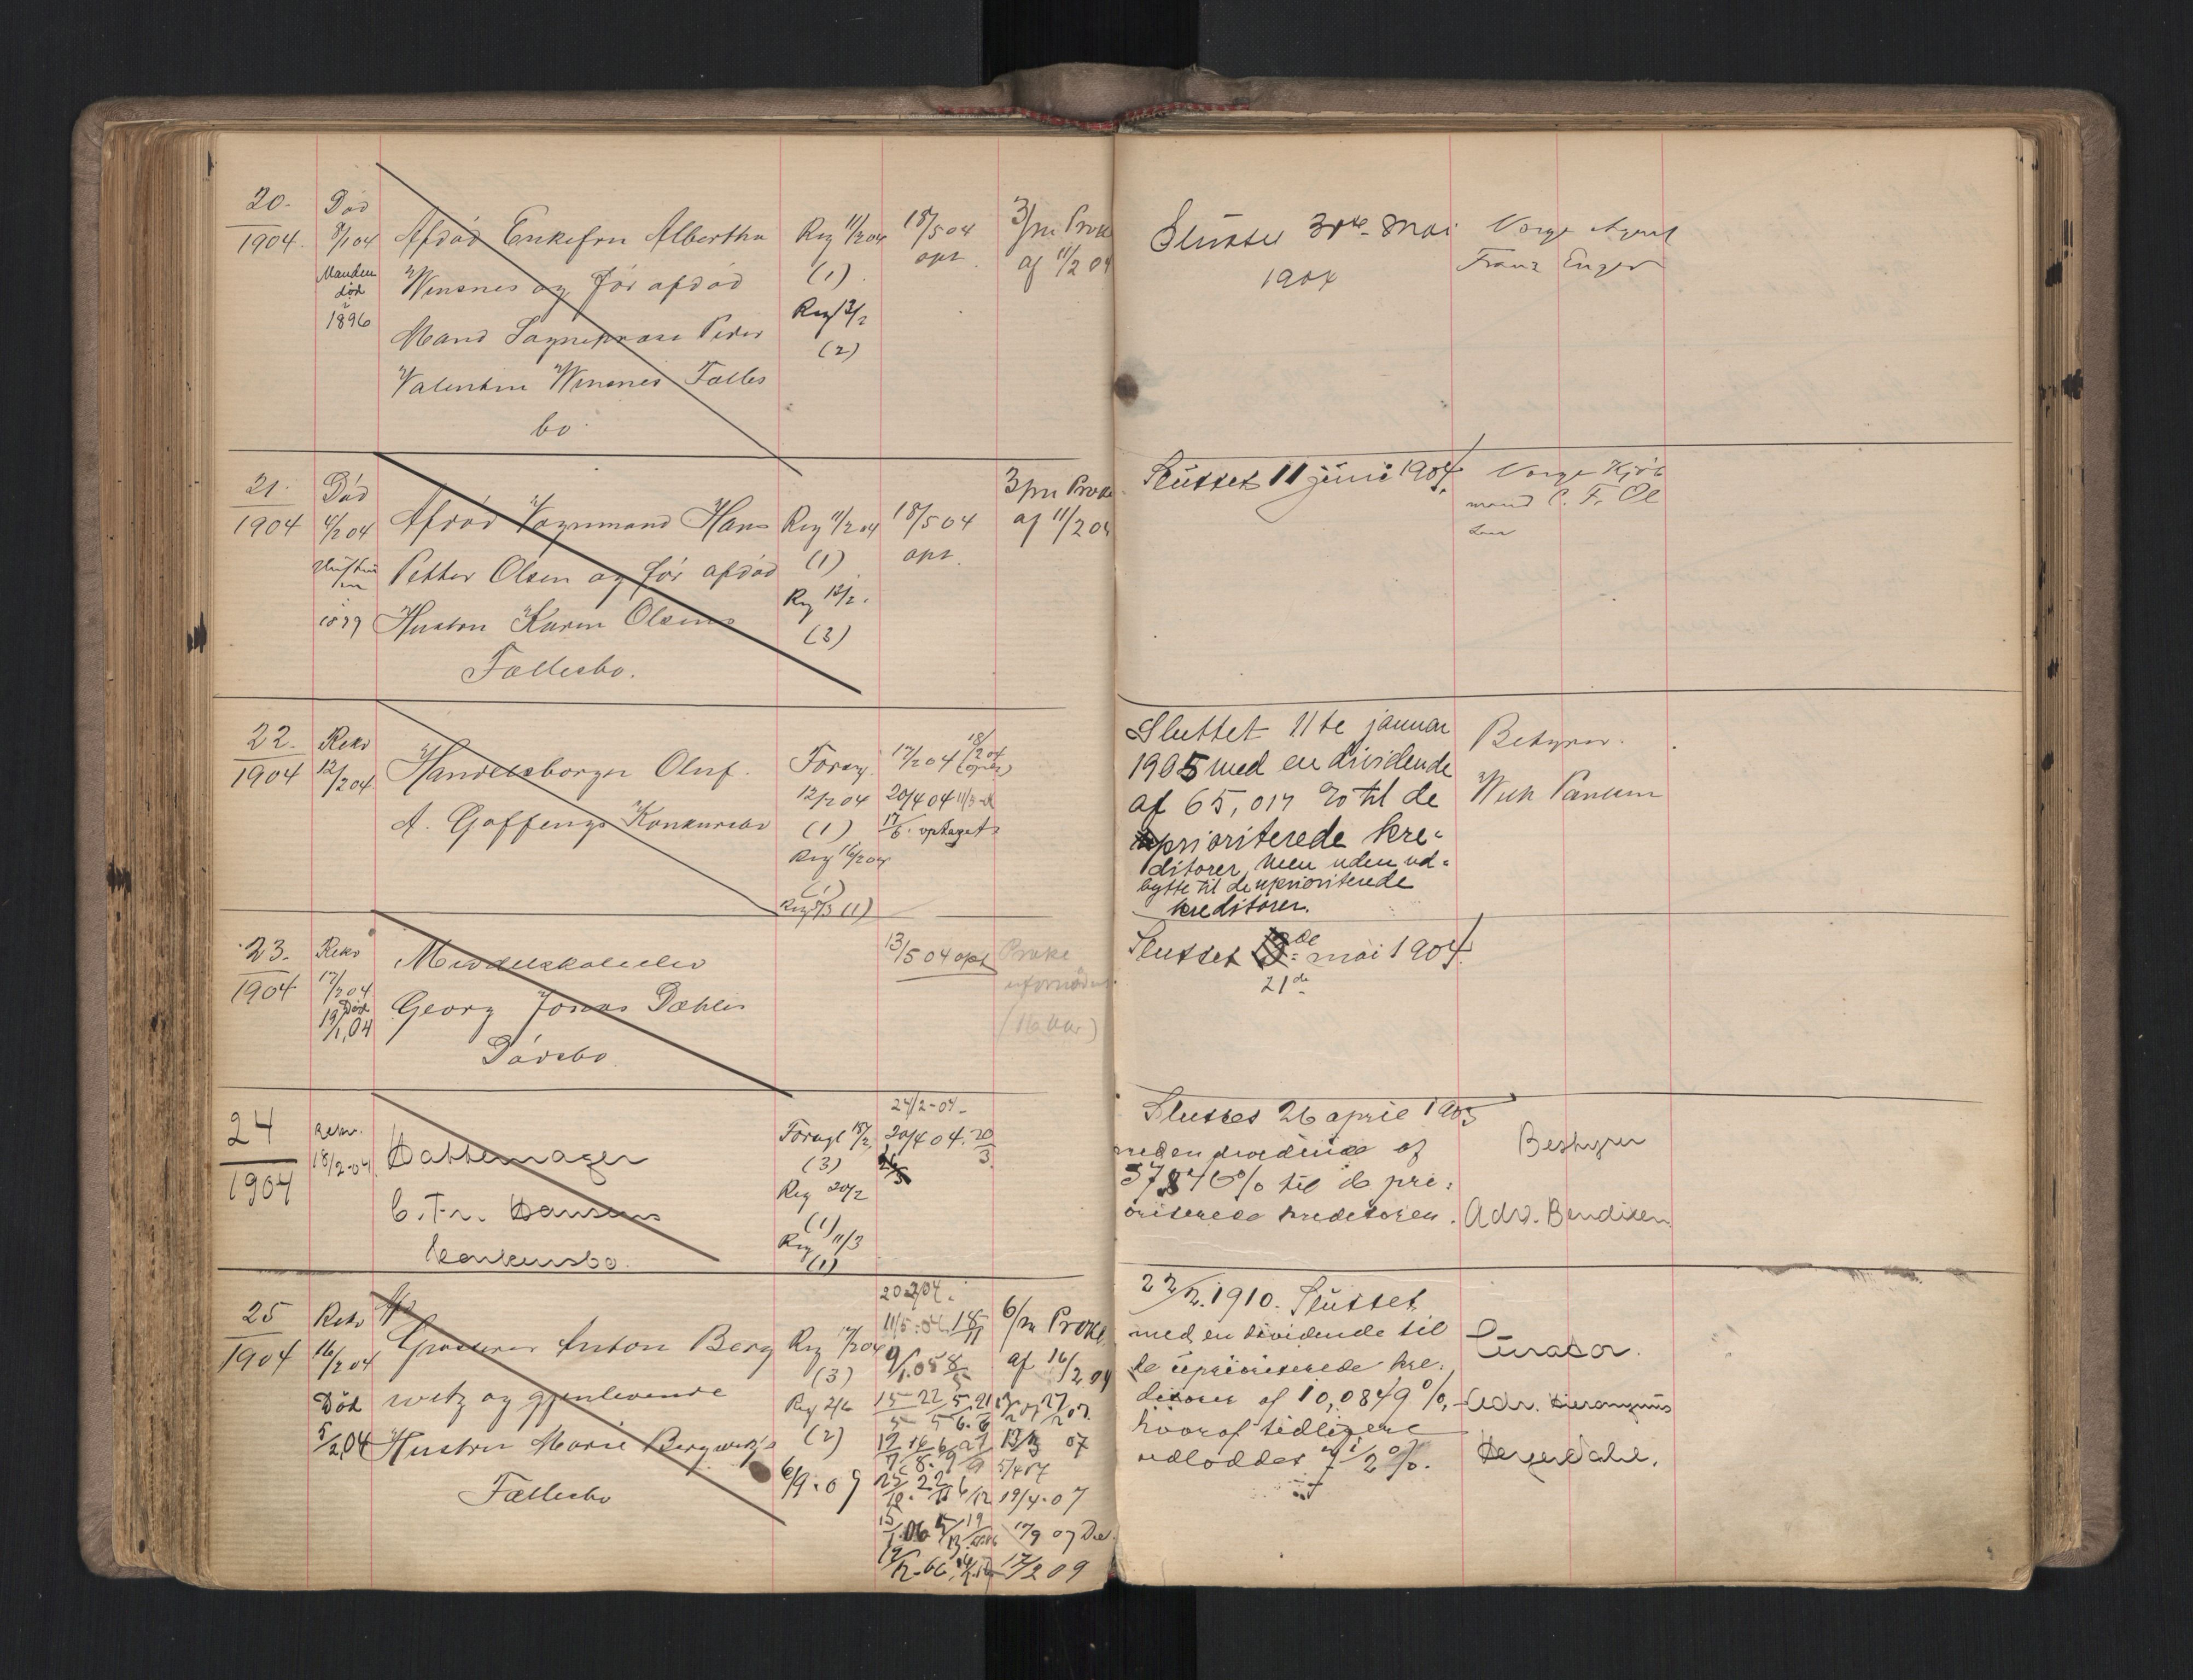 20.
1904.
Død
8/1 04
Manden
død
i
1896
Afdød Enkefru Albertha
Wensnes og før afdød
Mand Sogneprest Peder
Valentin Wensnes Fælles
bo
Reg 11/2 04
(1)
Reg 12/2
(2)
18/5 04
opt.
3/m Prok
af 11/2 04
Sluttet 31te Mai
1904
Verge Agent
Franz Enger
21.
1904
Død
4/2 04
Hustru
i
Afdød Vognmand Hans
Petter Olsen og før afdød
Hustru Karen Olsens
Fællesbo.
Reg 11/2 04
(1)
Reg 12/2.
(3)
18/5 04
opt.
3/m Prok
af 11/2 04
Sluttet 11 juni 1904.
Verge Kjøb
mand C. F. Ol
sen
22.
1904
Rekv
12/2 04
Handelsborger Oluf
A. Goffengs Konkursbo
Foreg.
12/2 04
(1)
Reg 16/2 04
(1)
Reg 5/3 (1)
17/2 04
20/4 04 11/3
17/6. optaget
Sluttet 11te januar
1905 med en dividende
af 65,017 % til de
prioriterede kre-
ditorer, men uden ud-
bytte til de uprioriterede
kreditorer.
Bestyrer.
Wilh Panum
23.
1904
Rekv
17/2 04
Død
19/1 04
Middelskoleelev
Georg Jonas Dæhlis
Dødsbo.
13/5 04 opt
Prokl
ufornøden
(16 Aar)
Sluttet 13de mai 1904.
21de
24
1904
Rekv.
18/2-04
Hattemager
C. Fr. Hansens
konkursbo.
Foregl 18/2
(3)
Reg 20/2
(1)
Reg 11/3
(1)
24/2-04-
20/4 04. 20/3
Sluttet 26 april 1905
med en dividende af
til de pri-
oriterede kreditorer.
Bestyrer
Adv. Bendixen
25
1904
Rekv
16/2 04
Død
5/2 04
Afd
Grosserer Anton Berg
witz og gjenlevende
Hustru Marie Bergwitz's
Fællesbo
Reg 17/2 04
(3)
Reg 2/6
(2)
6/9.07
20-2/04.
11/5-04 18/11
9/1.05 8/5
15/5 22/5 5/6. 21/6
12/7 16/8. 6/9 27/9
25/10. 22/11 6/12
6/m Prokl
af 16/2 04
13/3 07
5/4 07
19/4.07
17/9 07
17/2 09
22/12.1910. Sluttet
med en dividende til
de uprioriterede kre-
ditorer af 10,0849 %,
hvoraf tidligere
udloddet 7 1/2 %.
Curator.
Adv. Hieronymus
Heyerdahl.